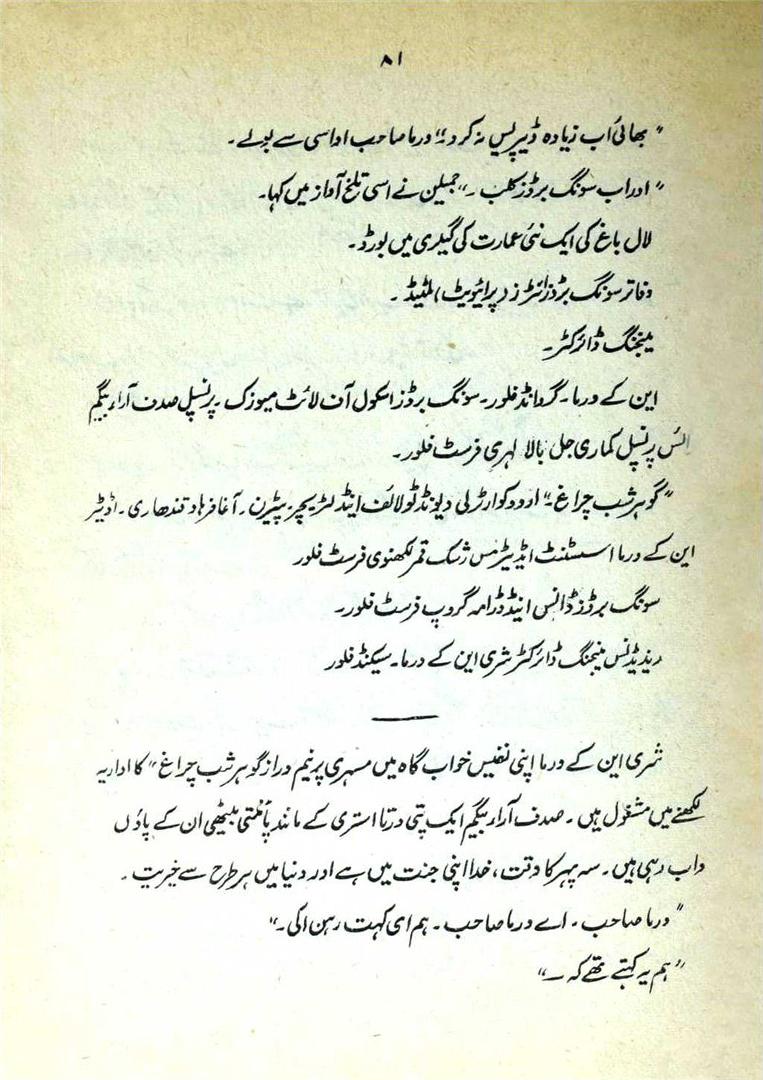 ۸۱
" بھائی اب زیادہ ڈیپریس نہ کرو۔" ورما صاحب اداسی سے بولے۔
" اور اب سونگ برڈز کلب ۔" جمیلن نے اسی تلخ آواز میں کہا۔
لال باغ کی ایک نئی عمارت کی گیلری میں بورڈ۔
دفاتر سونگ برڈز انٹرز (پرائیویٹ) لمٹیڈ ۔
مینجنگ ڈائرکٹر۔
این کے ورما۔ گراونڈ فلور۔ سونگ برڈز اسکول آف لائٹ میوزک۔ پرنسپل صدف آراء بیگم
ائس پرنسپل کماری جل بالا لہری فرسٹ فلور۔
"گوہر شب چراغ۔" اردو کوارٹرلی ڈیوٹڈ ٹو لائف اینڈ لٹریچر۔ پیٹرن۔ آغا فرہاد قندھاری۔ اڈیٹر
این کے ورما اسسٹنٹ ایڈیٹر مس رشک قمر لکھنوی فرسٹ فلور
سونگ برڈز ڈانس اینڈ ڈرامہ گروپ فرسٹ فلور۔
ریذیڈنس مینجنگ ڈائرکٹر شری این کے ورما۔ سیکنڈ فلور
شری این کے ورما اپنی نفیس خواب گاہ میں مسہری پر نیم دراز گوہر شب چراغ" کا اداریہ
لکھنے میں مشغول ہیں۔ صدف آراء بیگم ایک پتی ورتا استری کے مانند پائنتی بیٹھی ان کے پاؤں
داب رہی ہیں۔ سہ پہر کا وقت، خدا اپنی جنت میں ہے اور دنیا میں ہر طرح سے خیریت ۔
" ورما صاحب ۔ اے ورما صاحب۔ ہم ای کہت رہن اکی۔"
"ہم یہ کہتے تھے کہ ۔"